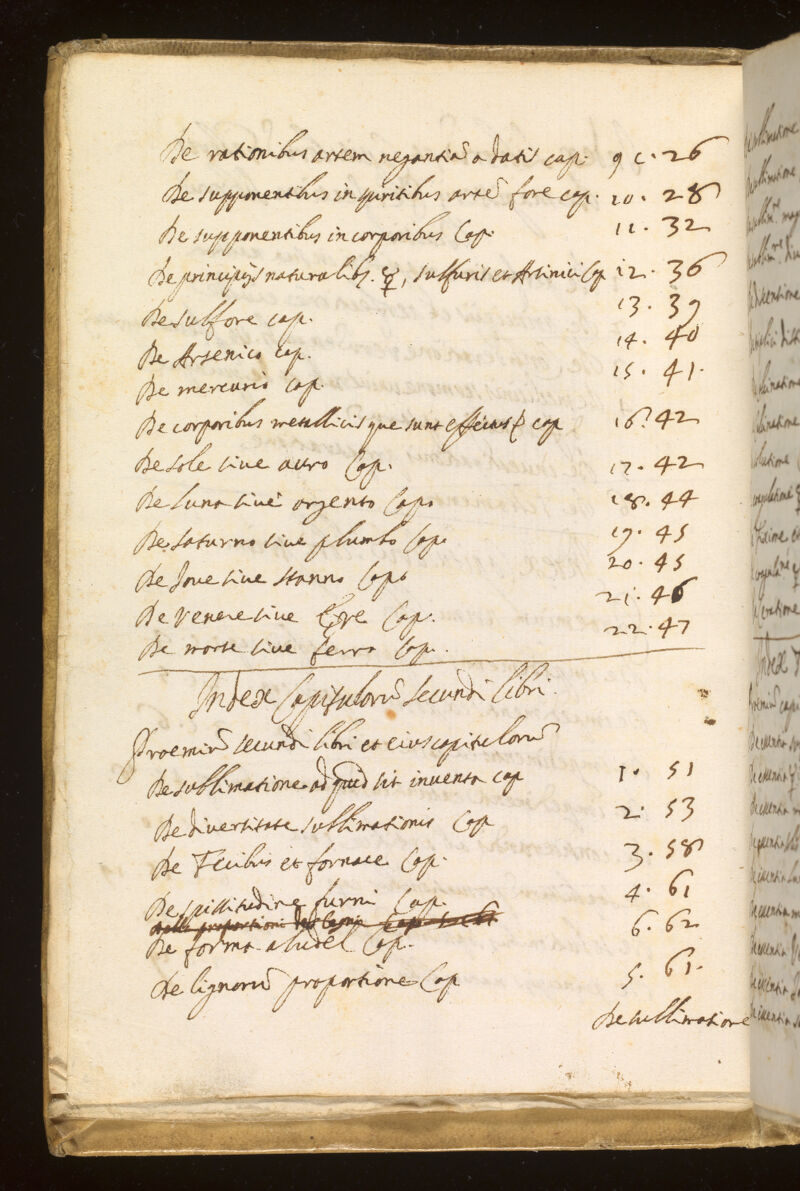 De rationibus artem negantiū a datis cap. 9 c. 26
De supponentibus in spiritibus artē fore cap. 10. 28
De supponentibus in corporibus Cap. 11. 32
De principijs naturalibs. ☿, sulfuris et Arsinici Cap 12. 36
De sulfore cap. 13. 39
De Arsenico cap. 14. 40
De mercurio cap. 15. 41.
De corporibus metallicis que sunt effectus cap 16. 42
De sole sive auro Cap. 17. 42
De luna sive argento Cap. 18. 44
De saturno sive plumbo Cap. 19. 45
De Jove sive stanno Cap. 20. 45
De venere sive Ere Cap. 21. 46
De marte sive ferro Cap. 22. 47
Index Capitulorū secundi libri.
Proemiū secundi libri et eius capitulorū
De sublimatione ad quid sit inventa cap 1. 51
De diversitate sublimationis Cap 2. 53
De Fecibus et fornace Cap. 3. 58
De spissitudine furni Cap. 4. 61
De forma aludel Cap. 6. 62
De lignorū proportione Cap 5. 61.
De sublimatione